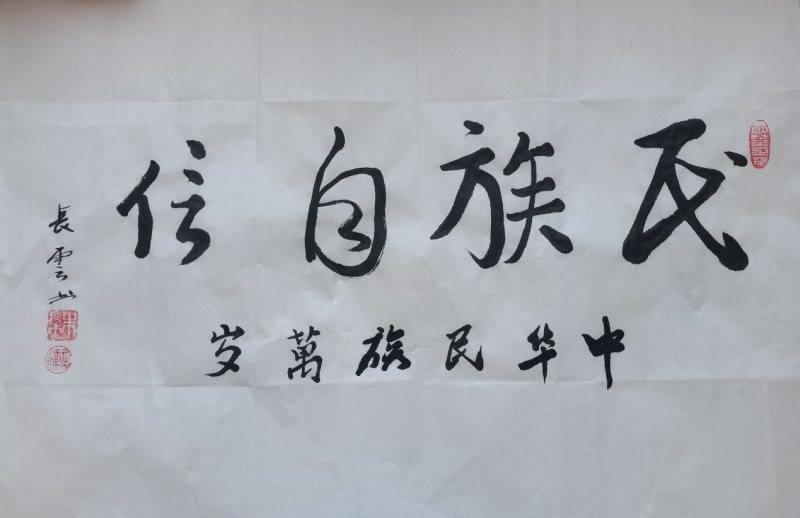 民族自信
中华民族萬岁
長雲